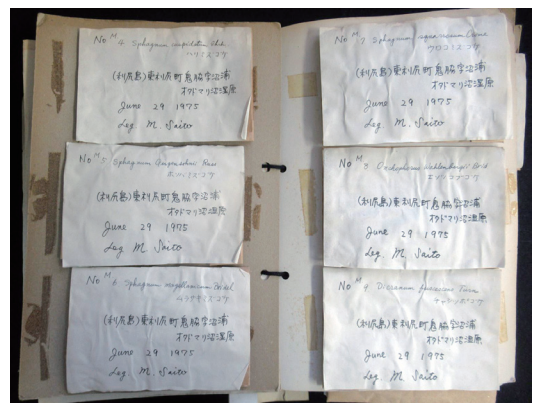 No M 4. Sphagnum cuspidatum Ehrh.
ハリミズゴケ
(利尻島)東利尻町鬼脇字沼浦
オタドマリ沼湿原
June 29 1975
Leg. M. Saito
No M 5 Sphagnum Girgensohnii Russ
ホソバミズゴケ
(利尻島)東利尻町鬼脇字沼浦
オタドマリ沼湿原
June 29 1975
Leg M Saito
No M 6 Sphagnum magellanicum Brid
ムラサキミズゴケ
(利尻島)東利尻町鬼脇字沼浦
オタドマリ沼湿原
June 29 1975
Leg. M. Saito
No M 7 Sphagnum squarrosum Crome
ウロコミズゴケ
(利尻島)東利尻町鬼脇字沼浦
オタドマリ沼湿原
June 29 1975
Leg. M. Saito
No M 8 Oncophorus Wahlenbergii Brid
(利尻島)東利尻町鬼脇字沼浦
オタドマリ沼湿原
June 29 1975
Leg. M. Saito
No M 9 Dicranum fuscescens
チャシッポゴケ
(利尻島)東利尻町鬼脇字沼浦
オタドマリ沼湿原
June 29 1975
Leg. M. Saito